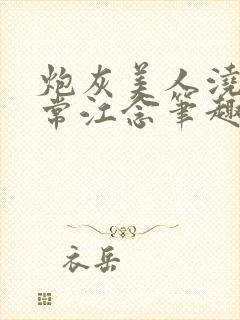 炮灰美人浇
常江念笔趣
衣岳